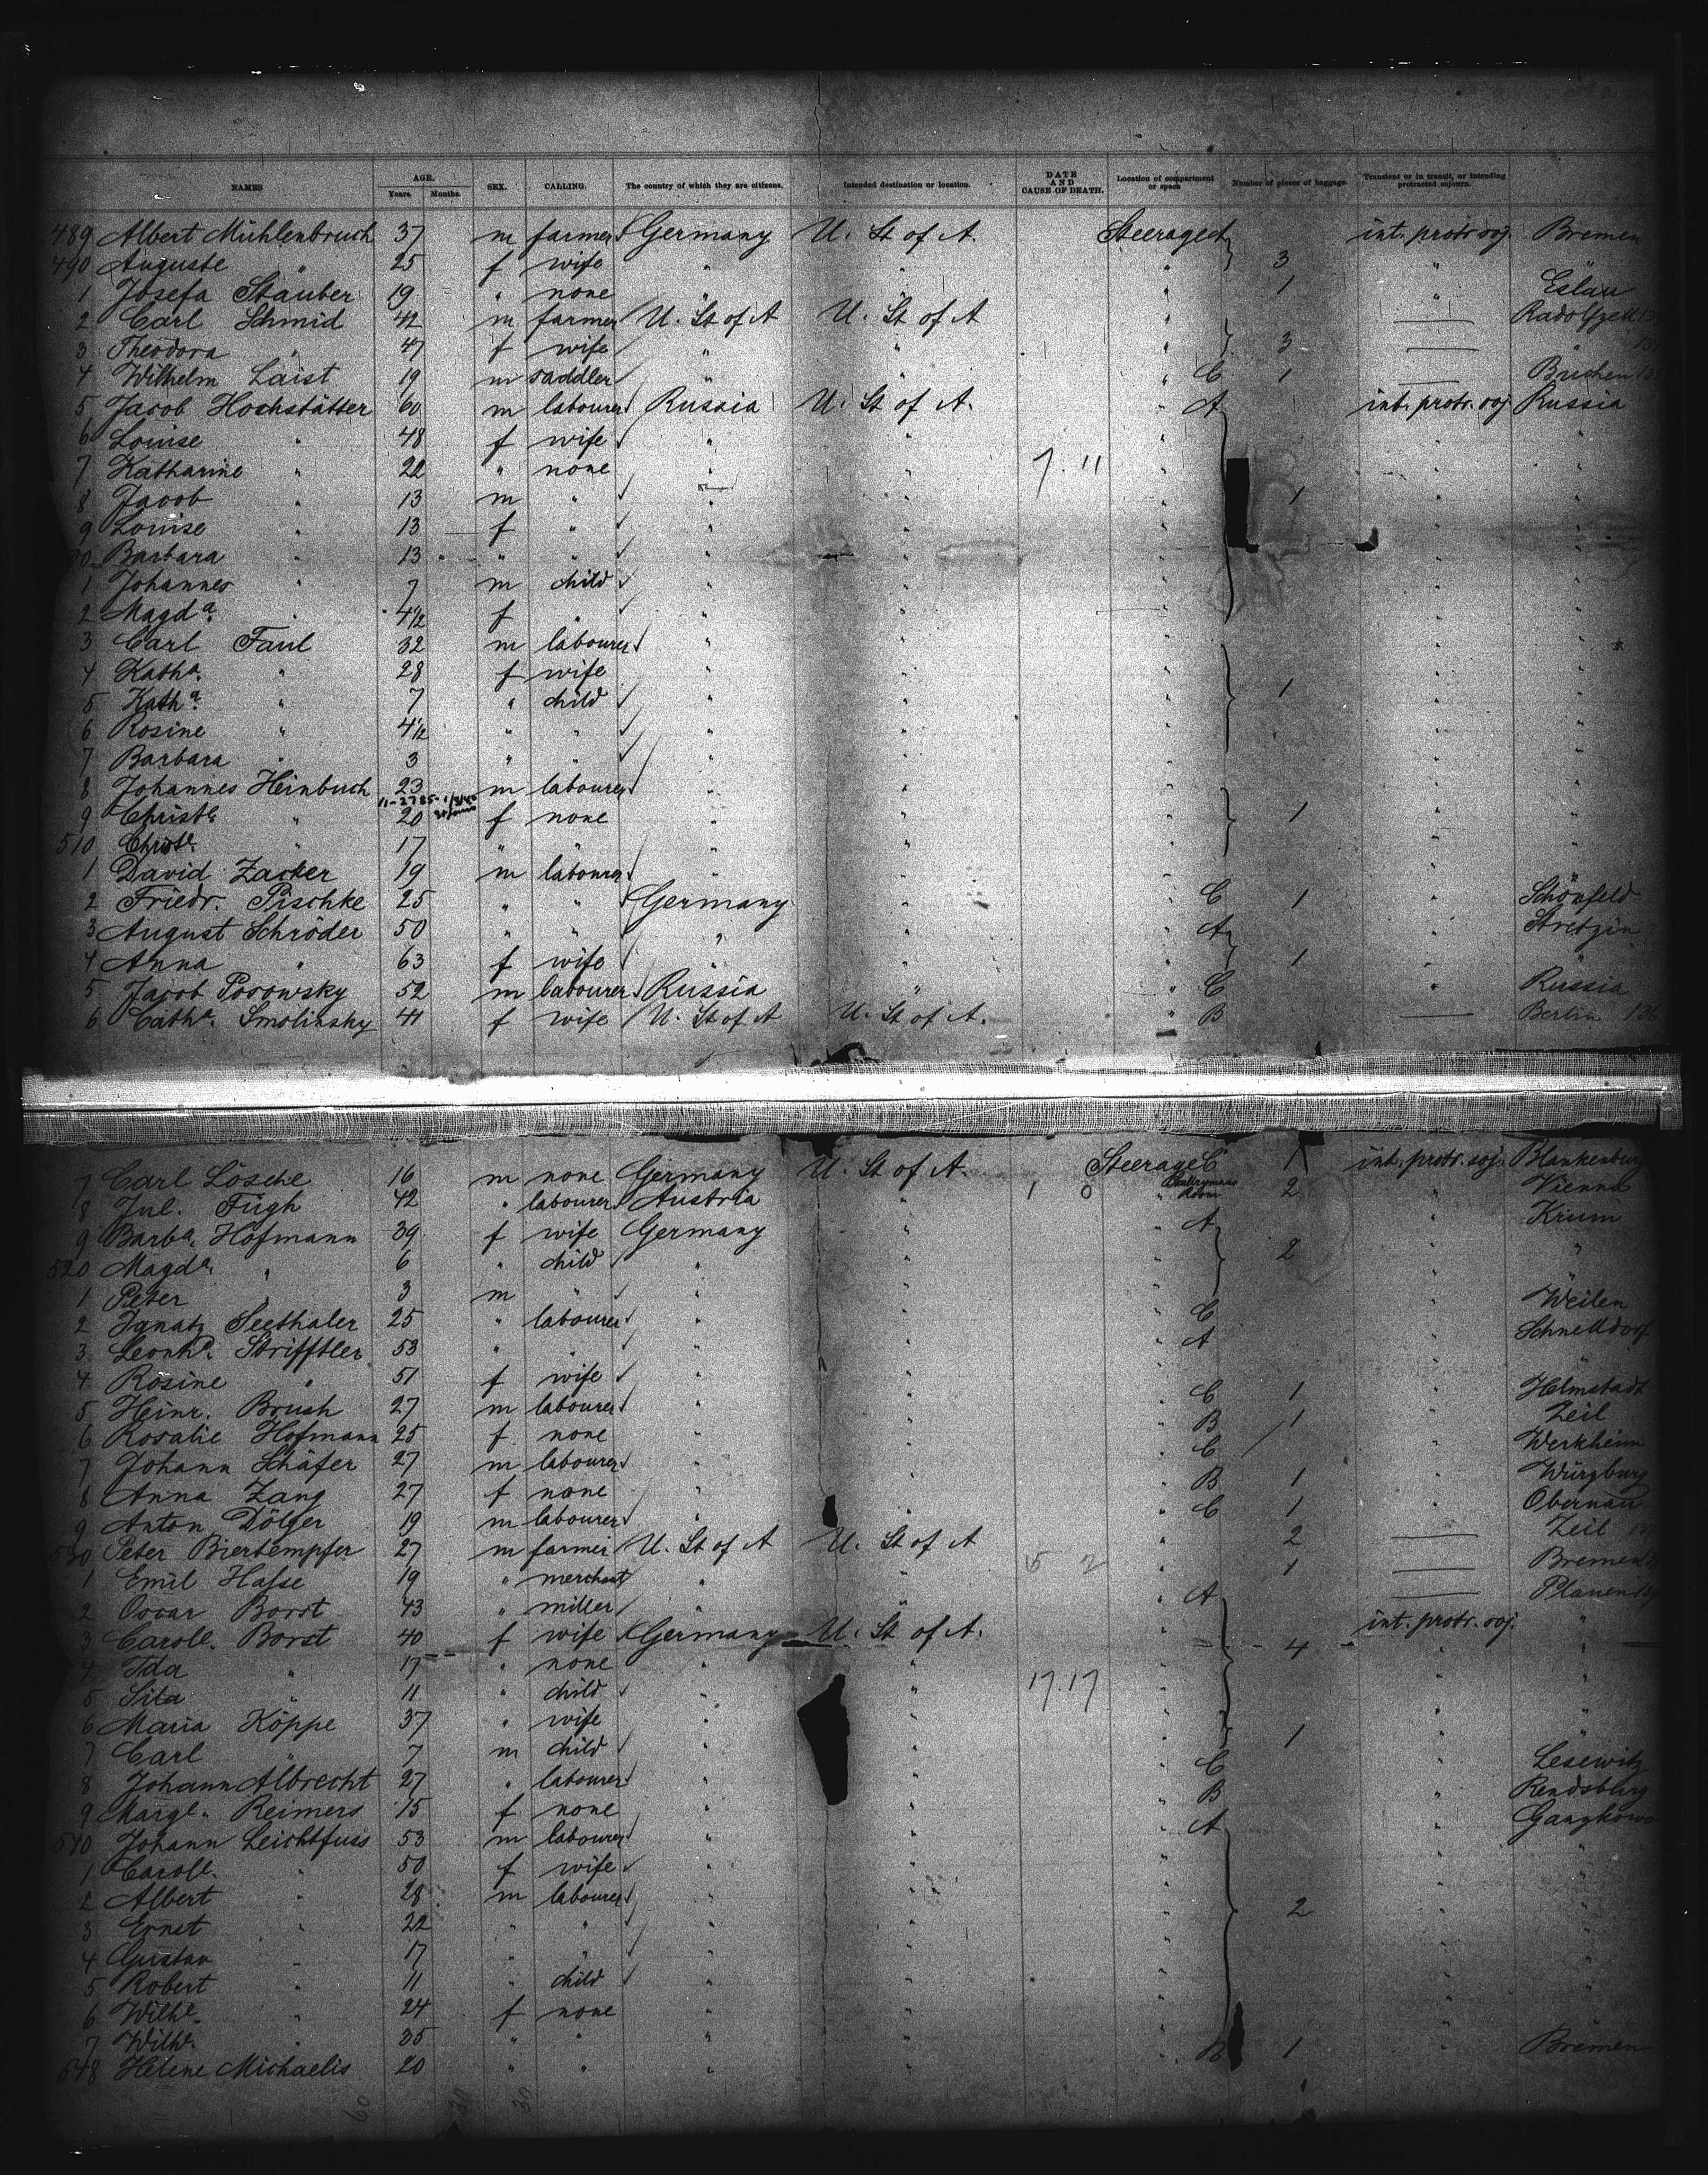 NAMES AGE. Years. Months. SEX. CALLING. The country of which they are citizens. Intended destination or location. DATE AND CAUSE OF DEATH. Location of compartment or space Number of pieces of baggage. Transient or in transit, or intending protracted sojourn.
489 Albert Mühlenbruch 37 m farmer Germany U. St of A. Steerage A 3 int. protr. soj. Bremen
490 Auguste " 25 f wife " " " "
1 Josefa Stauber 19 " none " " " 1 " Eslau
2 Carl Schmid 42 m farmer U. St of A U. St of A " 3 — Radolfzell
3 Theodora " 47 f wife " " " — "
4 Wilhelm Laist 19 m saddler " " " C 1 — Buchen
5 Jacob Hochstätter 60 m labourer Russia U. St of A. " A int. protr. soj. Russia
6 Louise " 48 f wife " " " " "
7 Katharine " 22 " none " " 7. 11 " " "
8 Jacob " 13 m " " " " 1 " "
9 Louise " 13 f " " " " " "
00 Barbara " 13 " " " " " " "
1 Johannes " 7 m child " " " " "
2 Magda. " 4½ f " " " " " "
3 Carl Faul 32 m labourer " " " " "
4 Katha. " 28 f wife " " " " "
5 Katha. " 7 " child " " " 1 " "
6 Rosine " 4½ " " " " " " "
7 Barbara " 3 " " " " " " "
8 Johannes Heinbuch 23 m labourer " " " " "
9 Christe. " 20 f none " " " 1 " "
510 Christe. " 17 " " " " " " "
1 David Zacker 19 m labourer " " " " "
2 Friedr. Pischke 25 " " Germany " " C 1 " Schönfeld
3 August Schröder 50 " " " " " A " Stretzin
4 Anna " 63 f wife " " " 1 " "
5 Jacob Posowsky 52 m labourer Russia " " C " Russia
6 Catha. Smolinsky 41 f wife U. St of A U. St of A. " B — Berlin 136
7 Carl Lösche 16 m none Germany U. St of A. Steerage C 1 int. protr. soj. Blankenburg
8 Jul. Fügh 42 " labourer Austria " 1 0 " Room 2 " Vienna
9 Barba. Hofmann 39 f wife Germany " " A " Krum
520 Magda. " 6 " child " " " 2 " "
1 Peter " 3 m " " " " " "
2 Ignatz Seethaler 25 " labourer " " " C " Weilen
3 Leonhd. Strifftler 53 " " " " " A " Schnelldorf
4 Rosine " 51 f wife " " " " "
5 Heinr. Brush 27 m labourer " " " C 1 " Helmstadt
6 Rosalie Hofmann 25 f none " " " B 1 " Zeil
7 Johann Schäfer 27 m labourer " " " C / " Werkheim
8 Anna Zang 27 f none " " " B 1 " Würzburg
9 Anton Dölger 19 m labourer " " " C 1 " Obernau
530 Peter Biertempfer 27 m farmer U. St of A U. St of A " 2 — Zeil
1 Emil Hasse 19 " merchant " " 5 2 " 1 — Bremen
2 Oscar Borst 43 " miller " " " A — Plauen
3 Carole. Borst 40 f wife Germany U. St of A. " 4 int. protr. soj. "
4 Ida " 17 " none " " " " "
5 Sita " 11 " child " " 17. 17 " " "
6 Maria Köppe 37 " wife " " " 1 " "
7 Carl " 7 m child " " " " "
8 Johann Albrecht 27 " labourer " " " C " Lesewitz
9 Margt. Reimers 15 f none " " " B " Rendsburg
540 Johann Leichtfuss 53 m labourer " " " A " Ganzkowo
1 Carole. " 50 f wife " " " " "
2 Albert " 28 m labourer " " " 2 " "
3 Ernst " 22 " " " " " " "
4 Gustav " 17 " " " " " " "
5 Robert " 11 " child " " " " "
6 Wilhe. " 24 f none " " " " "
7 Wilhe. " 35 " " " " " " "
548 Helene Michaelis 20 " " " " " B 1 " Bremen